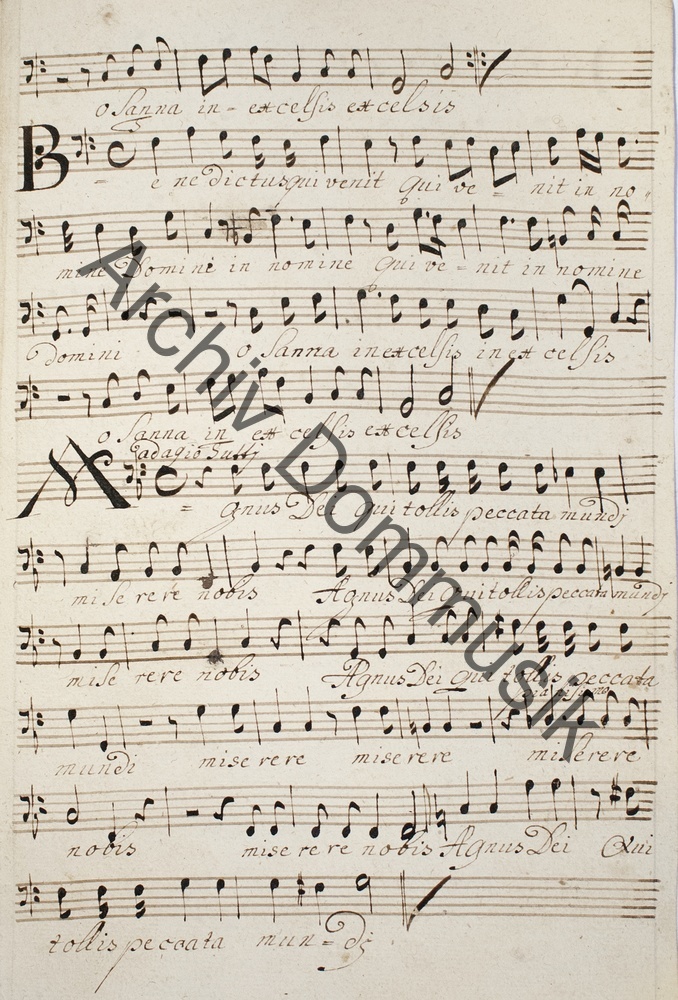 o Sanna in- excelsis excelsis
Benedictus qui venit qui ve - nit in no-
mine Domini in nomine qui ve = nit in nomine
Domini o Sanna in excelsis in excelsis
o Sanna in excelsis excelsis
adagio Tutti
Agnus Dei qui tollis peccata mundj
miserere nobis Agnus Dei qui tollis peccata mundj
miserere nobis Agnus Dei qui tollis peccata
pianissimo
mundi miserere miserere miserere
nobis miserere nobis Agnus Dei Qui
tollis peccata mun = dj
Archiv Dommusik